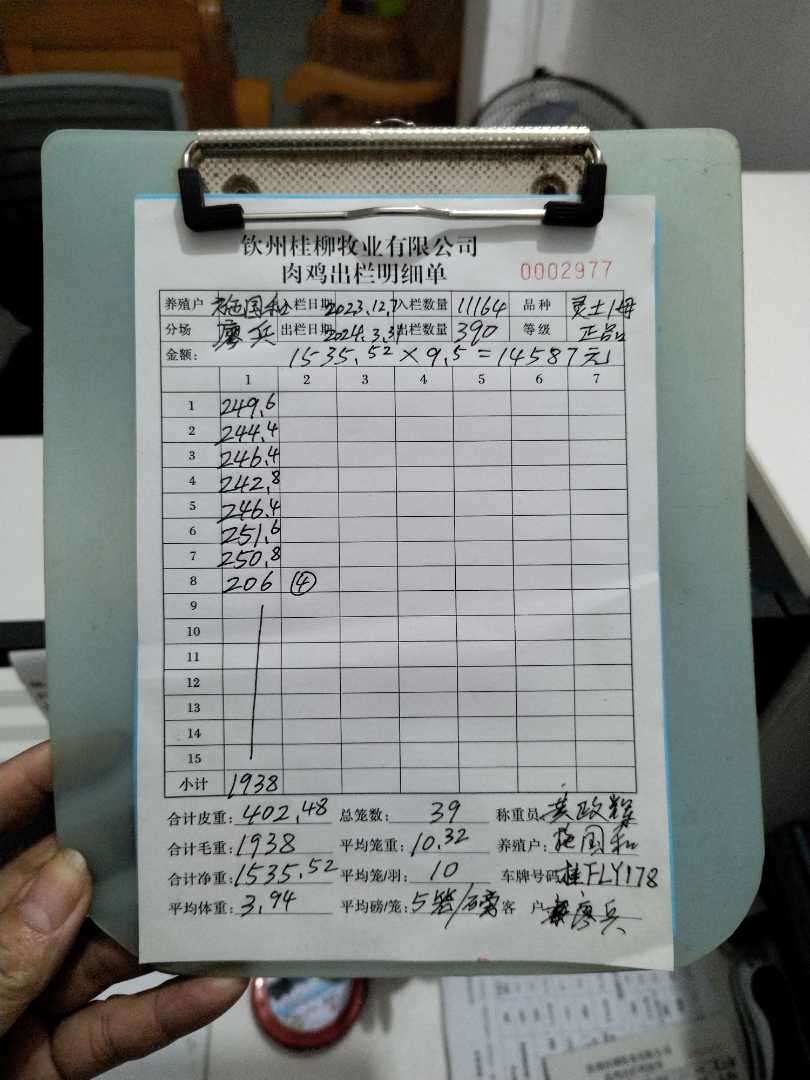 钦州桂柳牧业有限公司
肉鸡出栏明细单 0002977
养殖户 施国和 入栏日期 2023.12.7 入栏数量 11164 品种 灵土1号
分场 廖兵 出栏日期 2024.3.31 出栏数量 390 等级 正品
金额: 1535.52×9.5=14587元
1 2 3 4 5 6 7
1 249.6
2 244.4
3 246.4
4 242.8
5 246.4
6 251.6
7 250.8
8 206 ④
9
10
11
12
13
14
15
小计 1938
合计皮重: 402.48 总笼数: 39 称重员 黄政辉
合计毛重: 1938 平均笼重: 10.32 养殖户: 施国和
合计净重: 1535.52 平均笼/羽: 10 车牌号码 桂FLY178
平均体重: 3.94 平均磅/笼: 5笼/磅 客户 廖兵